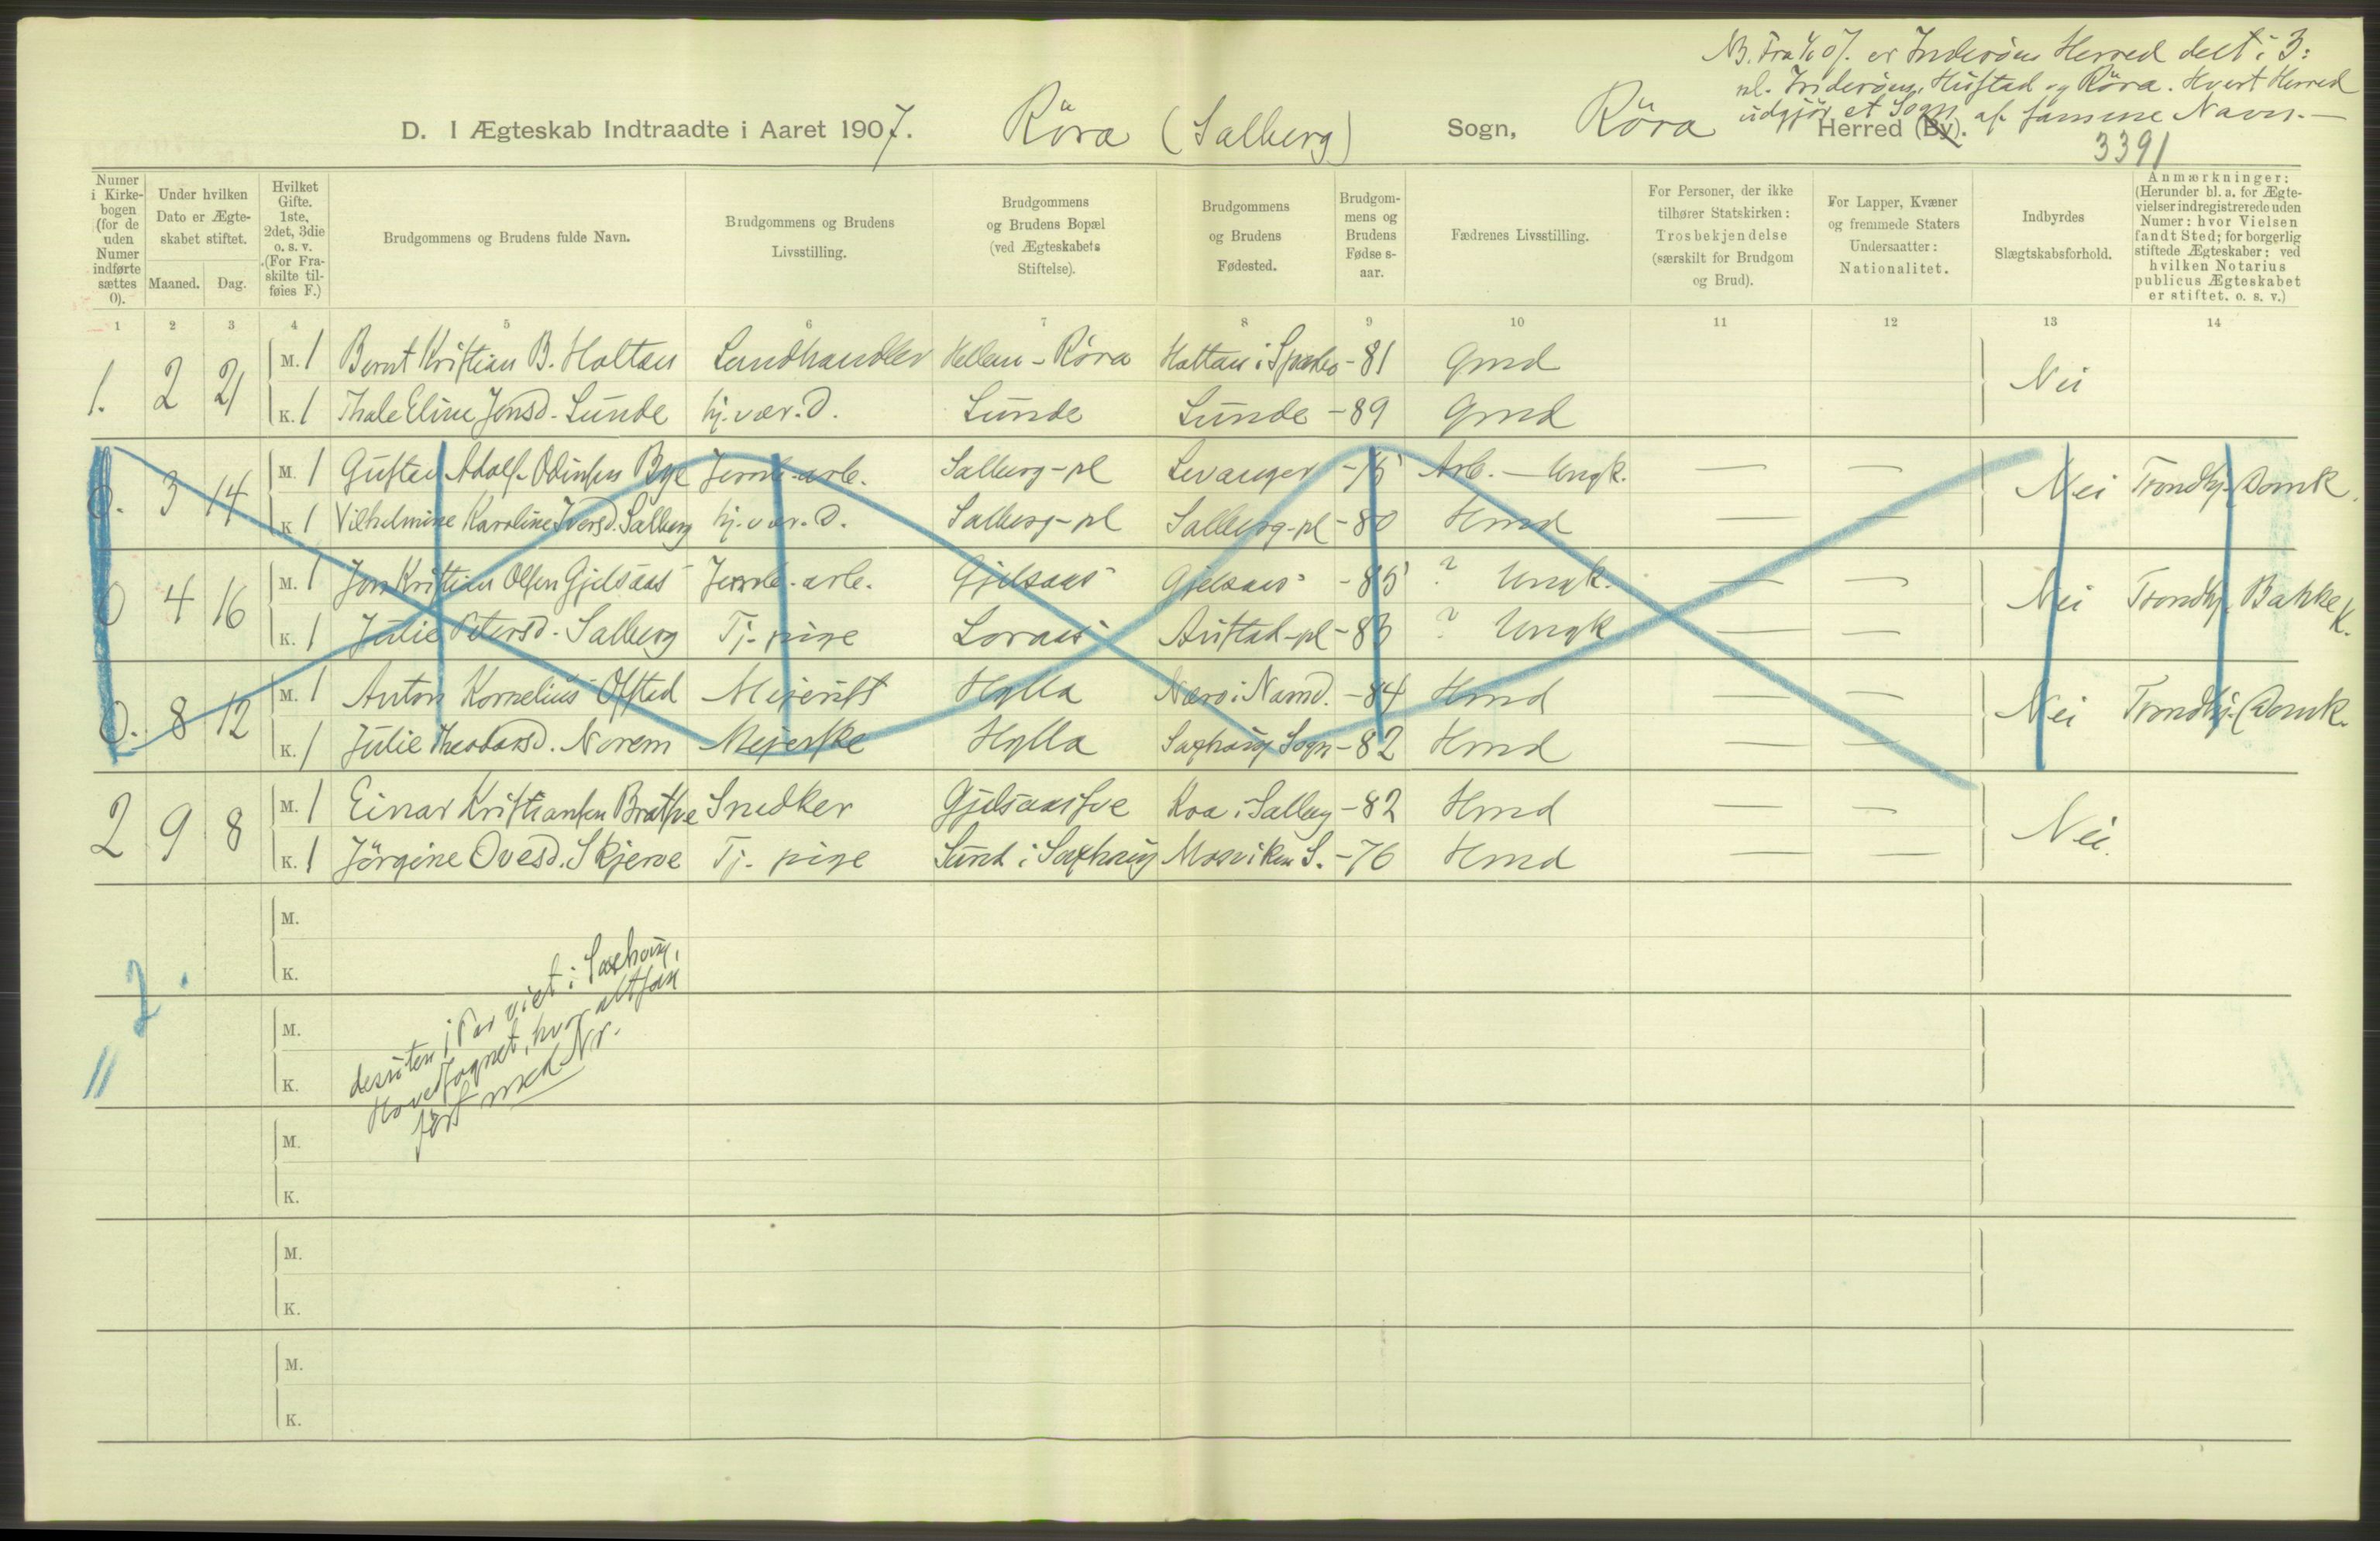 NB. Fra 1/1 07. er Inderöens Herred delt i 3:
nl. Inderöens, Hustad og Röra. Hvert Herred
udgjör et Sogn af samme Navn. —
D. I Ægteskab Indtraadte i Aaret 1907. Röra (Salberg) Sogn, Röra Herred (By).
3391
Numer i Kirkebogen (for de uden Numer indførte sættes 0).
Under hvilken Dato er Ægteskabet stiftet.
Maaned. Dag.
Hvilket Gifte. 1ste, 2det, 3die o. s. v. (For Fraskilte tilføies F.)
Brudgommens og Brudens fulde Navn.
Brudgommens og Brudens Livsstilling.
Brudgommens og Brudens Bopæl (ved Ægteskabets Stiftelse).
Brudgommens og Brudens Fødested.
Brudgommens og Brudens Fødselsaar.
Fædrenes Livsstilling.
For Personer, der ikke tilhører Statskirken: Trosbekjendelse (særskilt for Brudgom og Brud).
For Lapper, Kvæner og fremmede Staters Undersaatter: Nationalitet.
Indbyrdes Slægtskabsforhold.
Anmærkninger: (Herunder bl. a. for Ægtevielser indregistrerede uden Numer: hvor Vielsen fandt Sted; for borgerlig stiftede Ægteskaber: ved hvilken Notarius publicus Ægteskabet er stiftet, o. s. v.)
1 2 3 4 5 6 7 8 9 10 11 12 13 14
1. 2 21 M. 1 Bernt Kristian B. Holtan Landhandler Hellem - Röra Holtan i Sparbo -81 Gmd Nei
K. 1 Thale Eline Jensd. Lunde hj. vær. D. Lunde Lunde -89 Gmd
0. 3 14 M. 1 Gustav Adolf Odinsen Bye Jernb. arb. Salberg-pl Levanger -75 Arb. — Ungk. — — Nei Trondhj. Domk.
K. 1 Vilhelmine Karoline Iversd. Salberg hj. vær. D. Salberg-pl Salberg-pl -80 Hmd — —
0 4 16 M. 1 Jon Kristian Olsen Gjelsaas Jernb. arb. Gjelsaas Gjelsaas -85 ? Ungk. — — Nei Trondhj. Bakke K.
K. 1 Julie Petersd. Salberg Tj. pige Loraas Austad-pl -83 ? Ungk — —
0. 8 12 M. 1 Anton Kornelius Ofstad Mejerist Hylla Nærö i Namd. -84 Hmd — — Nei Trondhj. Domk.
K. 1 Julie Theodorsd. Norem Mejerske Hylla Saxhaug Sogn -82 Hmd — —
2 9 8 M. 1 Einar Kristiansen Bratsve Snedker Gjelsaassve Koa i Salberg -82 Hmd — — Nei.
K. 1 Jörgine Ovesd. Skjerve Tj. pige Sund i Saxhaug Mosviken S. -76 Hmd — —
M.
K.
2.
desuten 1 Par viet i Saxhaug,
Hovedsognet, hvor altsaa
fört med Nr.
M.
K.
M.
K.
M.
K.
M.
K.